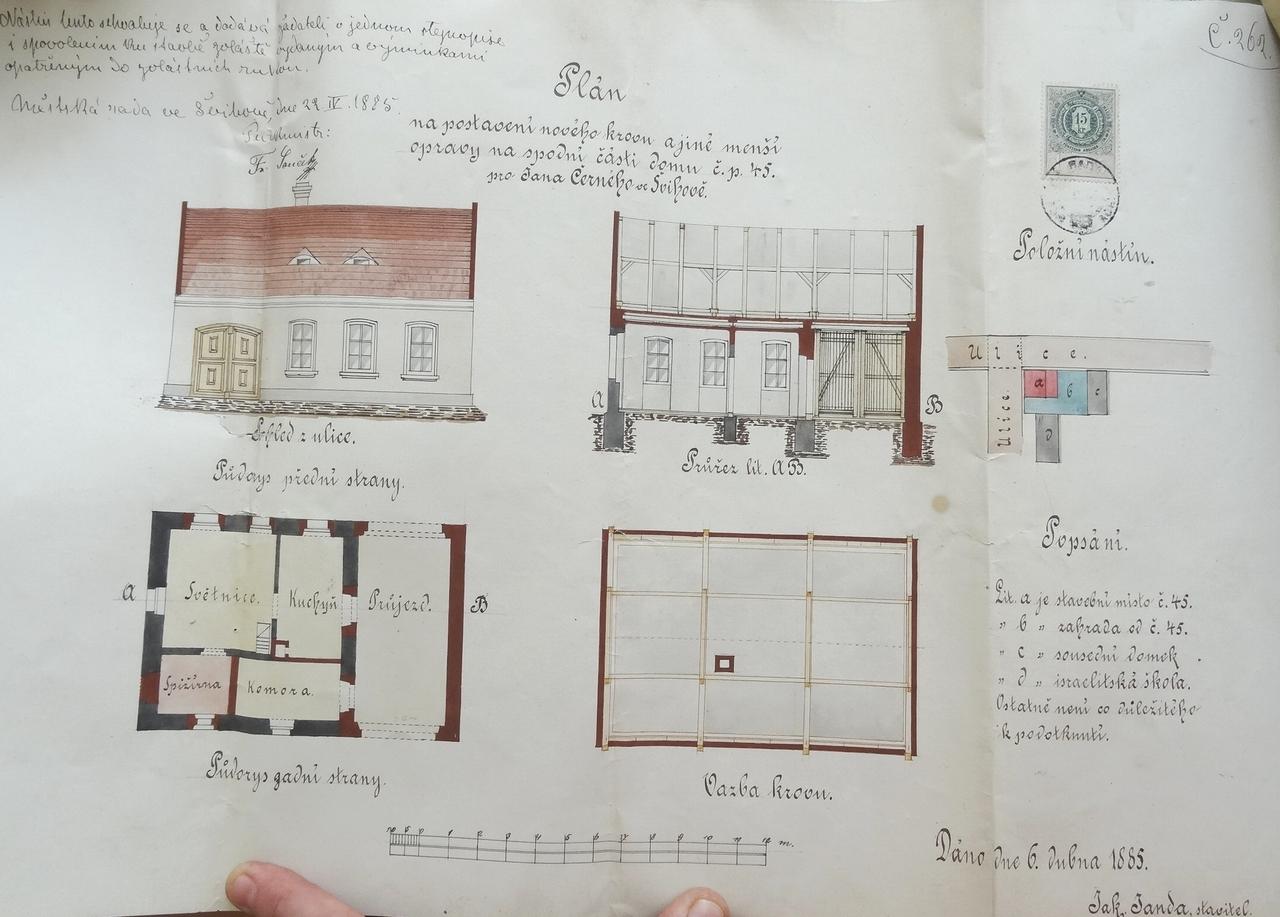 Nástin tento schvaluje se a dodává žadateli v jednom stejnopise
i s povolením ku stavbě zvláště vydaným a výminkami
opatřeným do vlastních rukou.
Městská rada ve Švihově, dne 22. IV. 1885.
Purkmistr:
Fr.
Č. 262.
Plán
na postavení nového krovu a jiné menší
opravy na spodní části domu č. p. 45.
pro Jana Černého ve Švihově.
15
kr
Položní nástin.
Ulice.
Ulice.
a
b
c
d
Pohled z ulice.
A
B
Průřez lit. A B.
Půdorys přední strany.
A
Světnice.
Kuchyň
Průjezd.
B
Spižírna
Komora.
Půdorys zadní strany.
Vazba krovu.
Popsání.
Lit. a je stavební místo č. 45.
" b " zahrada od č. 45.
" c " sousední domek
" d " israelitská škola.
Ostatně není co důležitého
k podotknutí.
10 5 0 1 2 3 4 5 6 7 8 9 10 11 12 m.
Dáno dne 6. dubna 1885.
Jak. Janda, stavitel.